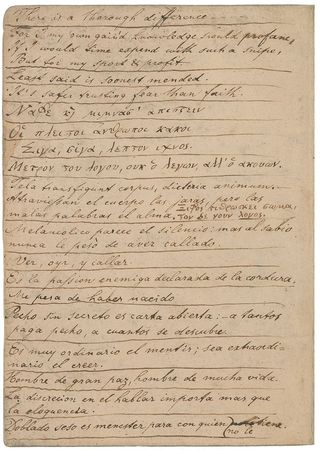 There is a thorough difference
For I my own gain'd knowledge should profane,
If I would time expend with such a snipe,
But for my sport & profit
Least said is soonest mended.
It's safer trusting fear than faith.
Οἱ πλειστοι ἄνθρωποι κακοι
Σιγα, σιγα, λεπτον ιχνος.
Μετρον του λογου, ουκ ὁ λεγων, αλλ' ὁ ακουων.
Tela transfigunt corpus, dictoria animum.
Atraviessan el cuerpo las jaras, pero las
malas palabras el alma,
Melancolico parece el silencio: mas al sabio
nunca le pesó de aver callado.
Ver, oyr, y callar.
Es la passion enemiga declarada de la cordura.
Me pesa de haber nacido
Pecho sin secreto es carta abierta: a tantos
paga pecho, a cuantos se descubre.
Es muy ordinario el mentir; sea extraordi-
nario el creer.
Hombre de gran paz, hombre de mucha vida.
La discrecion en el hablar importa mas que
la eloquencia.
Doblado seso es menester para con quien
no le